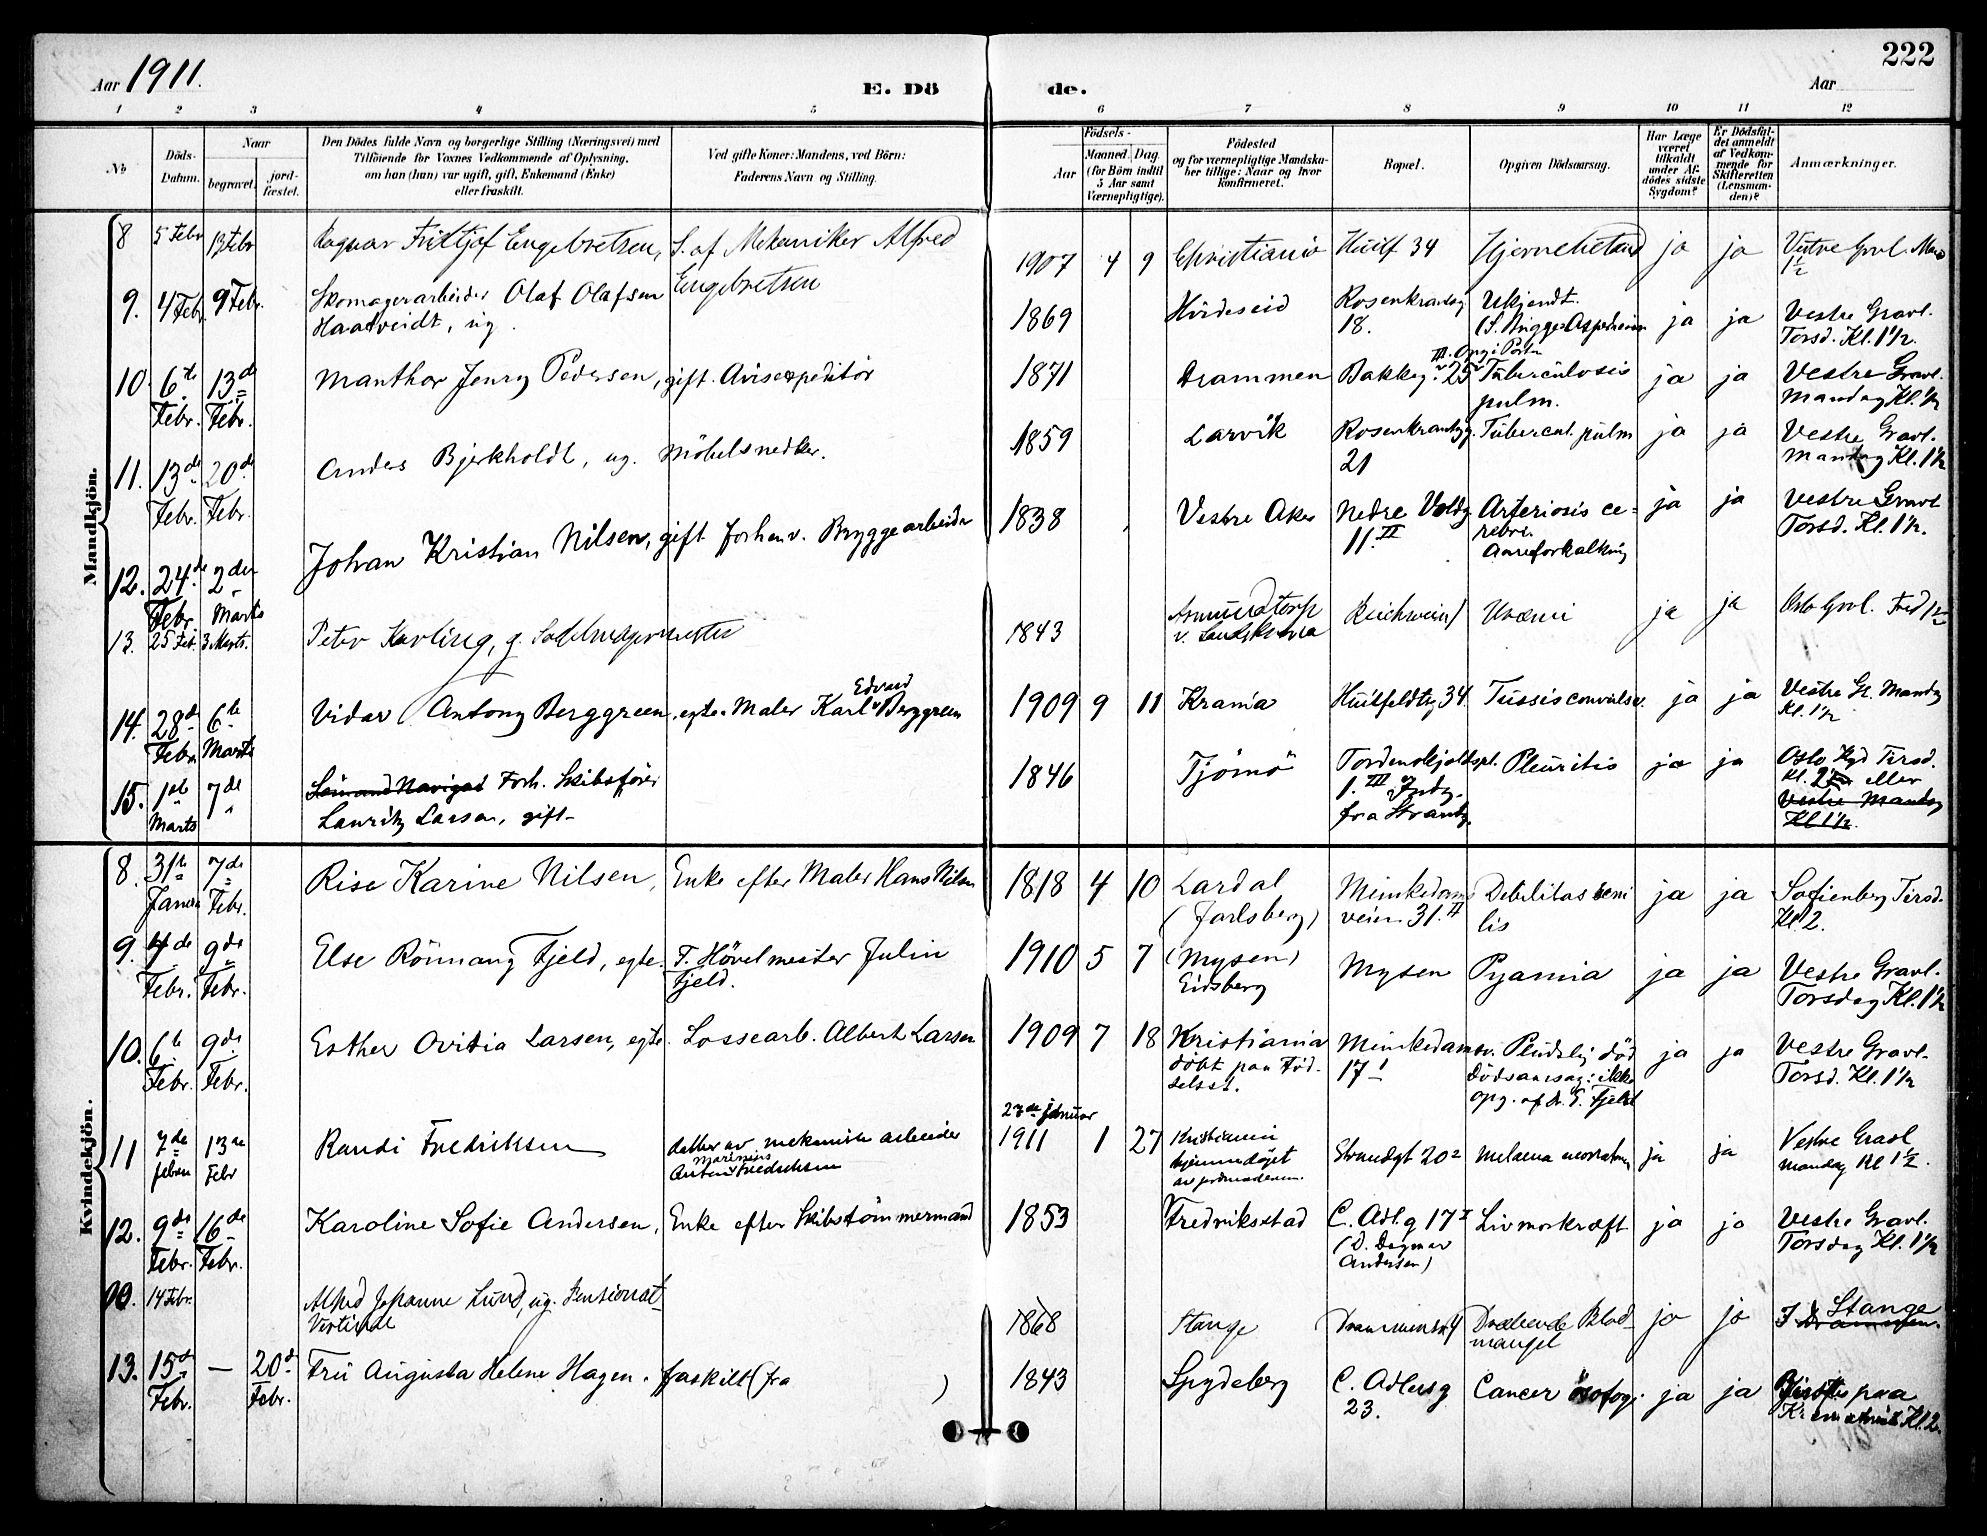 222
Aar 1911.
E. Dö de.
Aar
1 2 3 4 5 6 7 8 9 10 11 12
No
Döds-Datum.
Naar
begravet.
jord-fæstet.
Den Dödes fulde Navn og borgerlige Stilling (Næringsvei) med
Tilföiende for Voxnes Vedkommende af Oplysning,
om han (hun) var ugift, gift, Enkemand (Enke)
eller fraskilt.
Ved gifte Koner: Mandens, ved Börn:
Faderens Navn og Stilling.
Födsels-
Aar
Maaned. Dag.
(for Börn indtil
5 Aar samt
Værnepligtige).
Födested
og for værnepligtige Mandska-
ber tillige: Naar og hvor
konfirmeret.
Bopæl.
Opgiven Dödsaarsag.
Har Læge
været
tilkaldt
under Af-
dödes sidste
Sygdom?
Er Dödsfal-
det anmeldt
af Vedkom-
mende for
Skifteretten
(Lensman-
den)?
Anmærkninger.
Mandkjön.
8 5 Febr 13 Febr Ragnar Fritjof Engebretsen, S. af Mekaniker Alfred
Engebretsen
1907 4 9 Christiania Huitf 34 ja ja Vestre Gravl. 1½
9. 4 Febr. 9 Febr. Skomagerarbeider Olaf Olafsen
Haatveidt, ug.
1869 Hvideseid Rosenkrantzg 18. Ukjendt. ja ja Vestre Gravl.
Torsd. Kl. 1½.
10. 6te Febr. 13de Febr. Manthor Jenry Pedersen, gift. Avisexpeditör
1871 Drammen Bakkeg. 25 Tuberculosis
pulm. ja ja Vestre Gravl.
Mandag Kl. 1½
11. 13de Febr. 20de Febr. Anders Bjerkholdt, ug. Möbelsnedker.
1859 Larvik Rosenkrantzg. 21 Tubercul. pulm ja ja Vestre Gravl.
Mandag Kl. 1½
12. 24de Febr. 2den Marts Johan Kristian Nilsen, gift forhenv. Bryggearbeider
1838 Vestre Aker Nedre Voldg 11. II Arteriosis ce=
rebri.
Aareforkalkning ja ja Vestre Gravl
Torsd. Kl. 1½.
13. 25 Feb. 3 Marts. Peter Karling, g.
1843 Asmundtorp
v. Landskrona Uræmi ja ja Oslo Gravl. Fred 1½
14. 28de Febr. 6te Marts Vidar Antony Berggreen, egte. Maler Karl Edvard Berggreen
1909 9 11 Krania Huitfeldtsg 34. Tussis convulsiv. ja ja Vestre Gr. Mandag
Kl. 1½
15. 1ste Marts 7de " Sömand Navigat Forh. Skibsförer
Lauritz Larsen, gift
1846 Tjömö Tordenskjoldspl.
1. III
fra Strandg. Pleuritis ja ja Oslo Kgd Tirsd.
Kl. 2 eller
Vestre Mandag
Kl 1½.
Kvindekjön.
8. 31te Januar 7de Febr. Rise Karine Nilsen, Enke efter Maler Hans Nilsen
1818 4 10 Lardal
(Jarlsberg) Munkedams
veien 31. II Debilitas seni
lis ja ja Sofienberg Tirsd.
Kl 2.
9. 4de Febr. 9de Febr. Else Rönnaug Fjeld, egte. F. Hövelmester Julin
Fjeld.
1910 5 7 (Mysen)
Eidsberg Mysen Pyæmia ja ja Vestre Gravl.
Torsdag Kl. 1½
10. 6te Febr. 9de Febr. Esther Ovitia Larsen, egte. Lossearb. Albert Larsen
1909 7 18 Kristiania
döbt paa Föd-
selsst. Munkedamsv.
17 I Pludslig död
Dödsaarsag: ikke
opg. af Dr. Fjeld ja ja Vestre Gravl.
Torsd. Kl. 1½
11 7de 13de Febr Randi Fredriksen datter av mekanisk arbeider
Anton Marinius Fredriksen
23de Januar
1911 1 27 Kristiania
hjemmedöpt
av jordmoderen. Strandgt 20² Melæna neonatorum ja ja Vestre Gravl
mandag Kl 1½.
12. 9de Febr. 16de Febr. Karoline Sofie Andersen, Enke efter Skibstömmermand
1853 Fredriksstad C. Adl.g 17 I
(D. Dagmar
Andersen) Livmorkræft ja ja Vestre Gravl.
Torsdag Kl. 1½
14 Febr. Johanne Lund, ug. Pensionat-
Vertinde
1868 Stange Drammensv 4 Dræbende Blod-
mangel ja ja I Drammen. Stange
13. 15de Febr. — 20de Febr. Fru Augusta Helene Hagen. fraskilt (fra )
1843 Spydeberg C. Adlersg
23. Cancer ösofag. ja ja paa
Kl. 2.